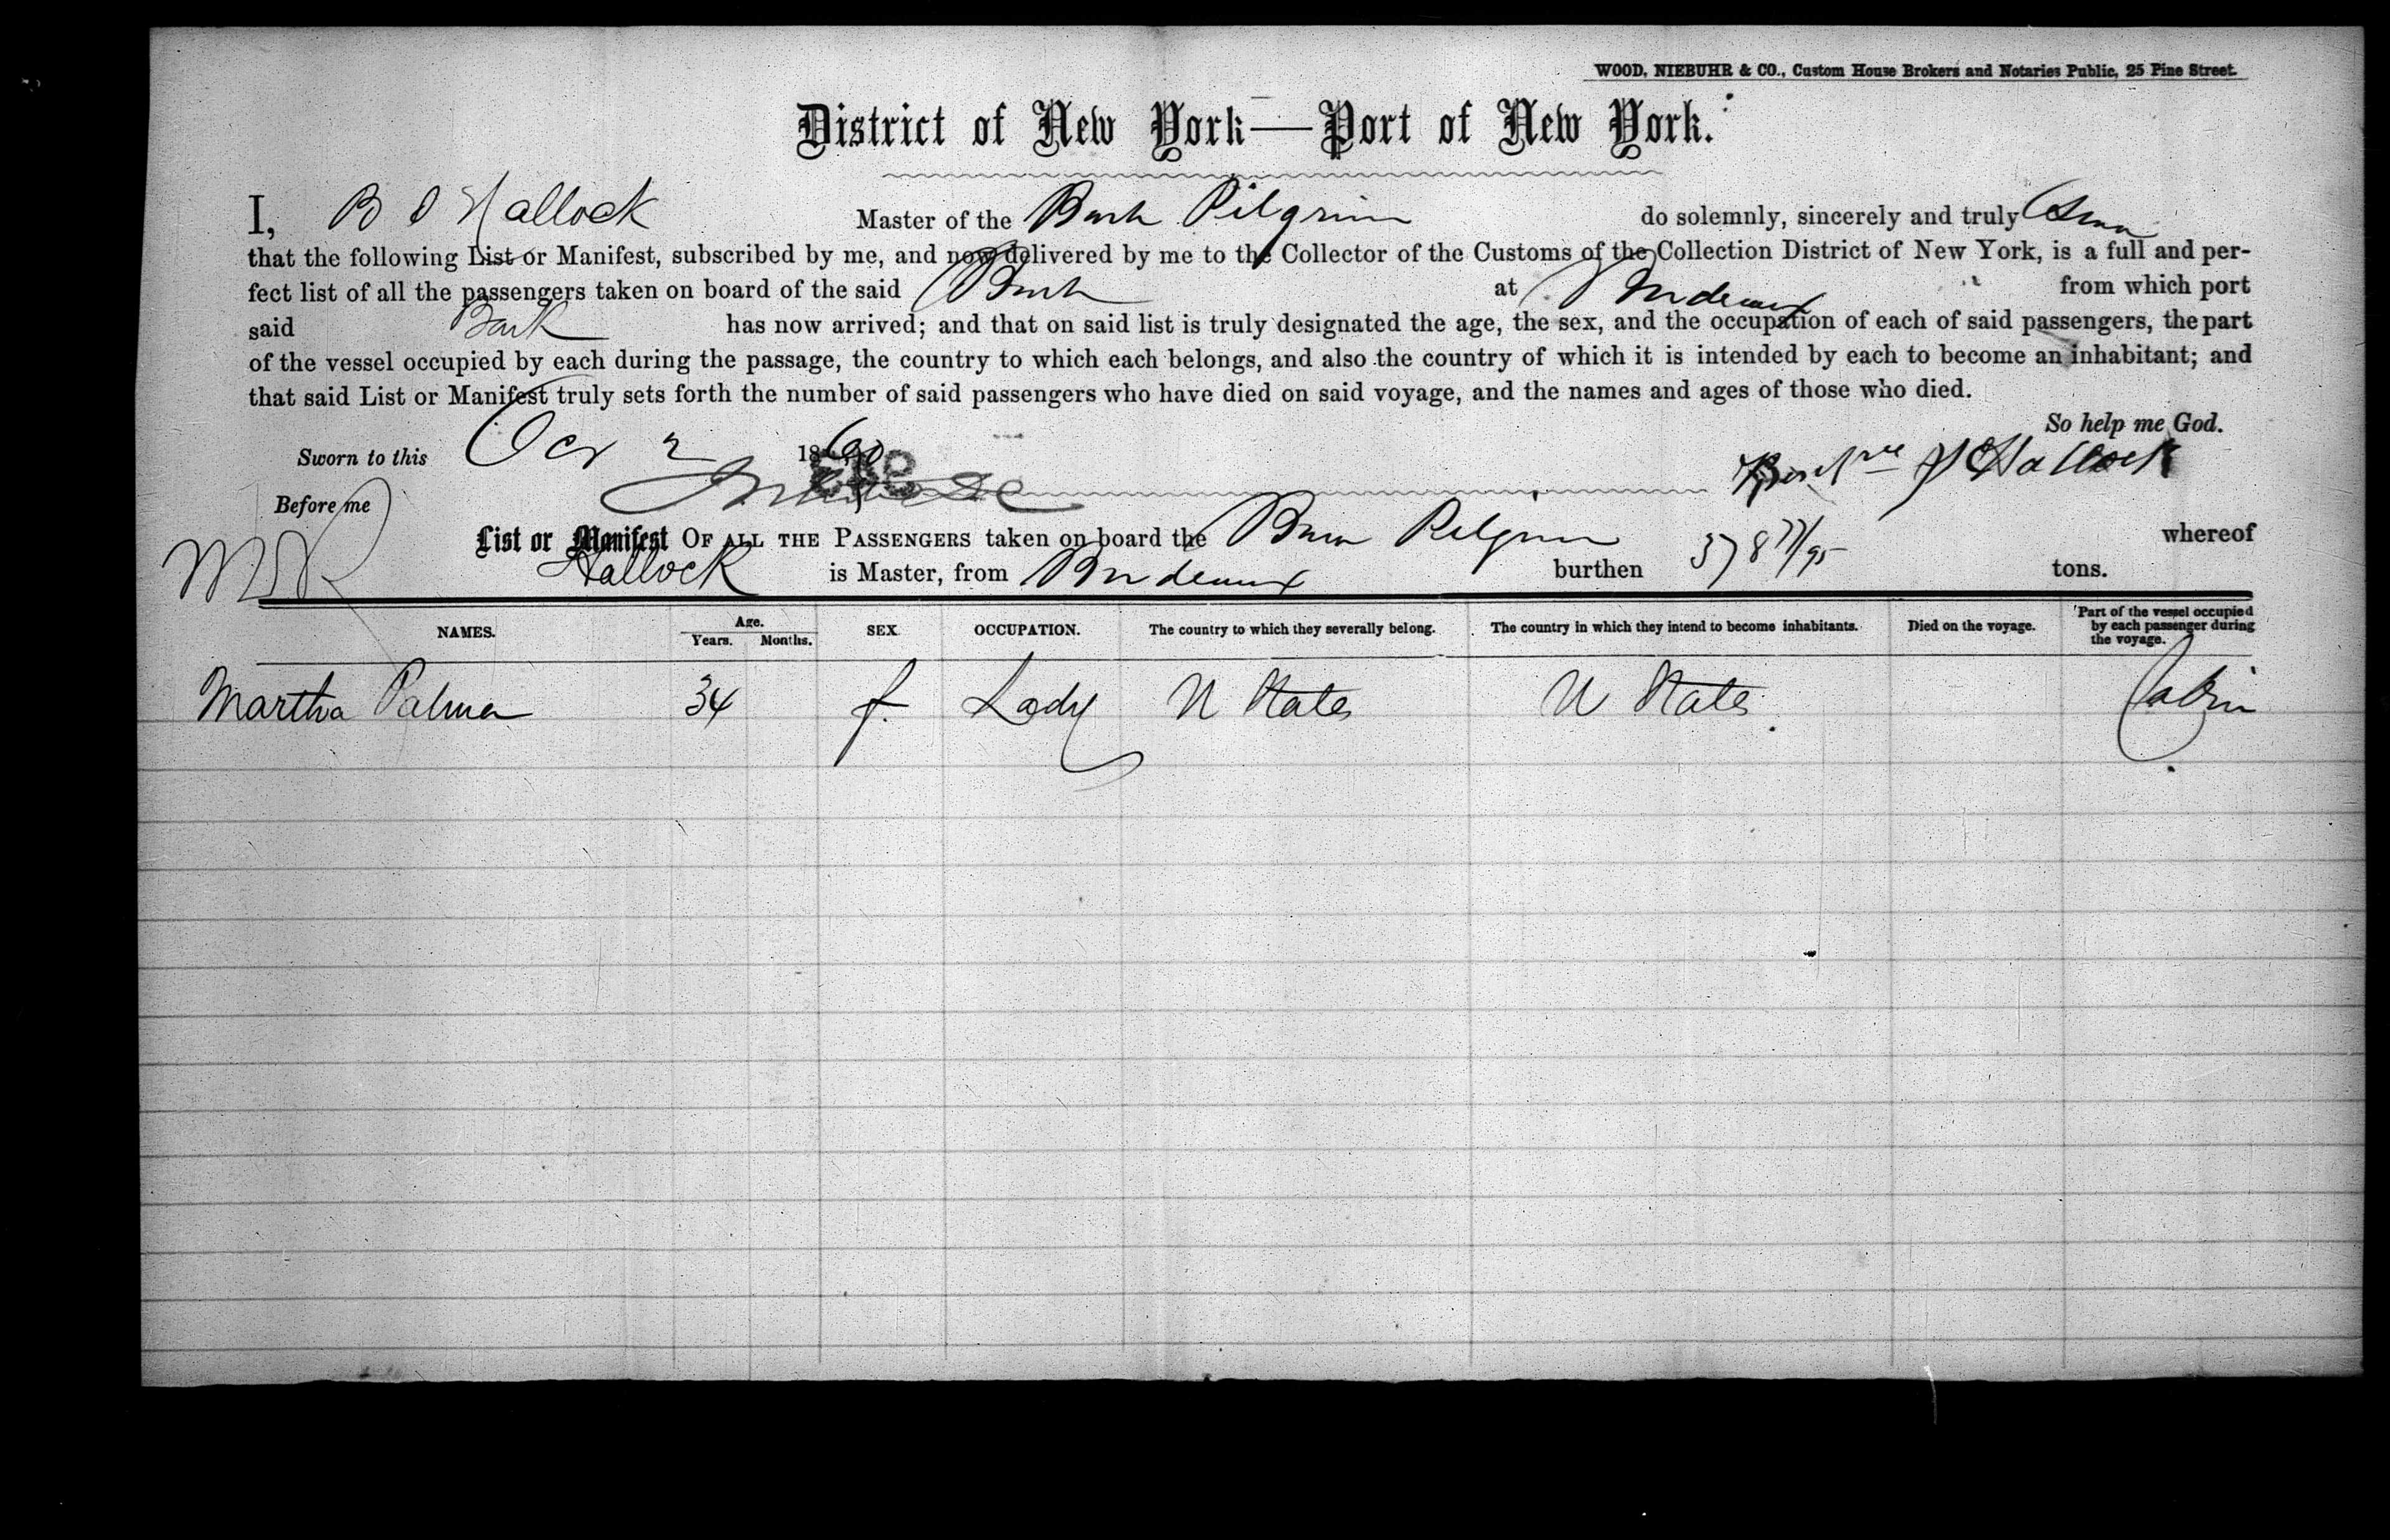 WOOD, NIEBUHR & CO., Custom House Brokers and Notaries Public, 25 Pine Street.
District of New York—Port of New York.
I, B Hallock Master of the Bark Pilgrim do solemnly, sincerely and truly
that the following List or Manifest, subscribed by me, and now delivered by me to the Collector of the Customs of the Collection District of New York, is a full and per-
fect list of all the passengers taken on board of the said Bark at Bordeaux from which port
said Bark has now arrived; and that on said list is truly designated the age, the sex, and the occupation of each of said passengers, the part
of the vessel occupied by each during the passage, the country to which each belongs, and also the country of which it is intended by each to become an inhabitant; and
that said List or Manifest truly sets forth the number of said passengers who have died on said voyage, and the names and ages of those who died.
So help me God.
Sworn to this Oct 2 1860 Hallock
Before me
List or Manifest OF ALL THE PASSENGERS taken on board the Bark Pilgrim whereof
Hallock is Master, from Bordeaux burthen 378 77/95 tons.
NAMES. Age. Years. Months. SEX. OCCUPATION. The country to which they severally belong. The country in which they intend to become inhabitants. Died on the voyage. Part of the vessel occupied by each passenger during the voyage.
Martha Palmer 34 f. Lady U States U States Cabin